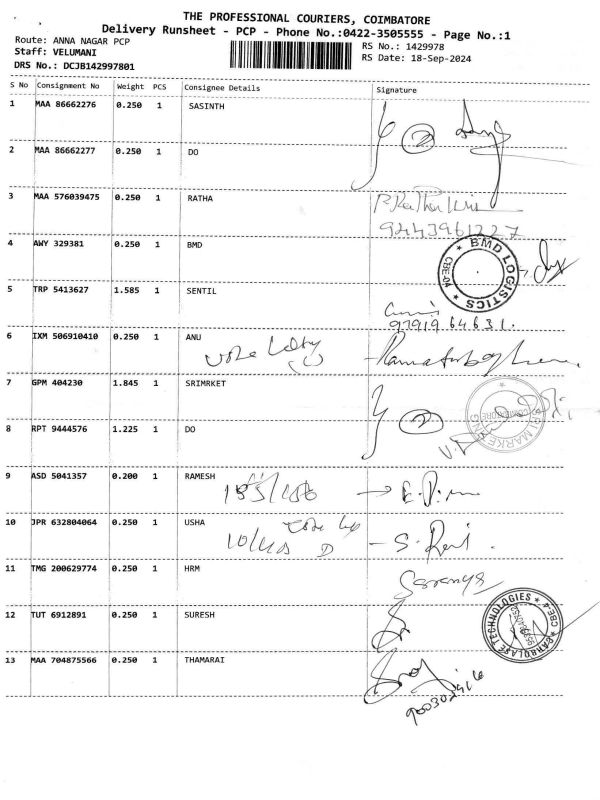 THE PROFESSIONAL COURIERS, COIMBATORE
Delivery Runsheet - PCP - Phone No.:0422-3505555 - Page No.:1
Route: ANNA NAGAR PCP
Staff: VELUMANI
DRS No.: DCJB142997801
RS No.: 1429978
RS Date: 18-Sep-2024
S No Consignment No Weight PCS Consignee Details Signature
1 MAA 86662276 0.250 1 SASINTH
2
2 MAA 86662277 0.250 1 DO
3 MAA 576039475 0.250 1 RATHA
9443961227
4 AWY 329381 0.250 1 BMD
BMD LOGISTICS
CBE-04
5 TRP 5413627 1.585 1 SENTIL
97919 64631.
6 IXM 506910410 0.250 1 ANU
7 GPM 404230 1.845 1 SRIMRKET
2
8 RPT 9444576 1.225 1 DO
9 ASD 5041357 0.200 1 RAMESH
10 JPR 632804064 0.250 1 USHA
S. Ravi.
11 TMG 200629774 0.250 1 HRM
Saranya
12 TUT 6912891 0.250 1 SURESH
TECHNOLOGIES
CBE-4
13 MAA 704875566 0.250 1 THAMARAI